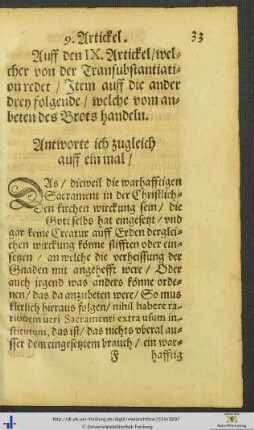 9. Artickel. 33
Auff den IX. Artickel/ wel-
cher von der Transubstantiati-
on redet / Item auff die ander
drey folgende / welche vom an-
beten des Brots handeln.
Antworte ich zugleich
auff ein mal /
DAs / dieweil die warhafftigen
Sacrament in der Christlich-
en kirchen wirckung sein / die
Gott selbs hat eingesetzt / vnd
gar keine Creatur auff Erden dergleí-
chen wirckung könne stifften oder ein-
setzen / an welche die verheissung der
Gnaden mit angehefft were / Oder
auch jrgend was anders könne ordе-
nen / das da anzubeten were / So mus
klerlich hieraus folgen / nihil habere ra-
tionem ueri Sacramenti extra usum in-
stitutum, das ist / das nichts vberal aus-
ser dem eingesetztem brauch / ein war-
F hafftig
http://dl.ub.uni-freiburg.de/diglit/melanchthon1559/0097
© Universitätsbibliothek Freiburg